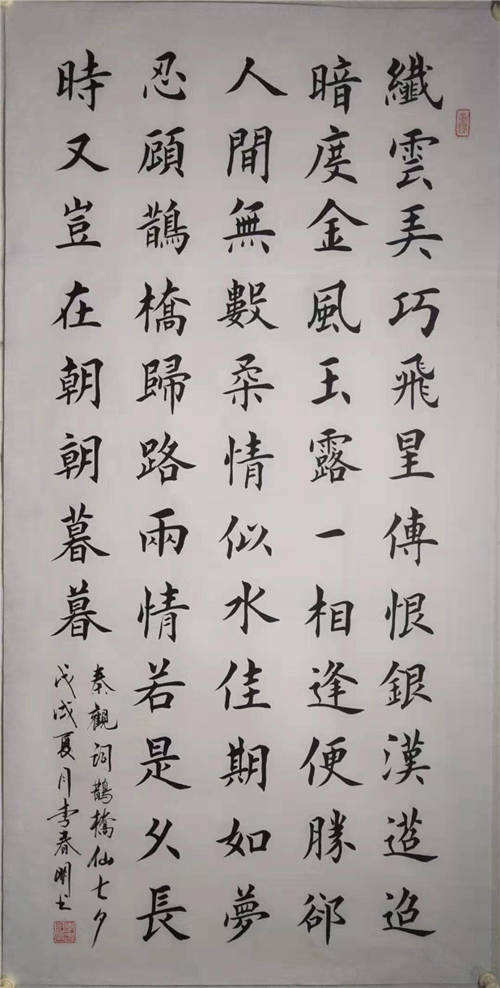 纖雲弄巧飛星傳恨銀漢迢迢
暗度金風玉露一相逢便勝卻
人間無數柔情似水佳期如夢
忍顧鵲橋歸路兩情若是久長
時又豈在朝朝暮暮
秦觀詞鵲橋仙七夕
戊戌夏月李春明书